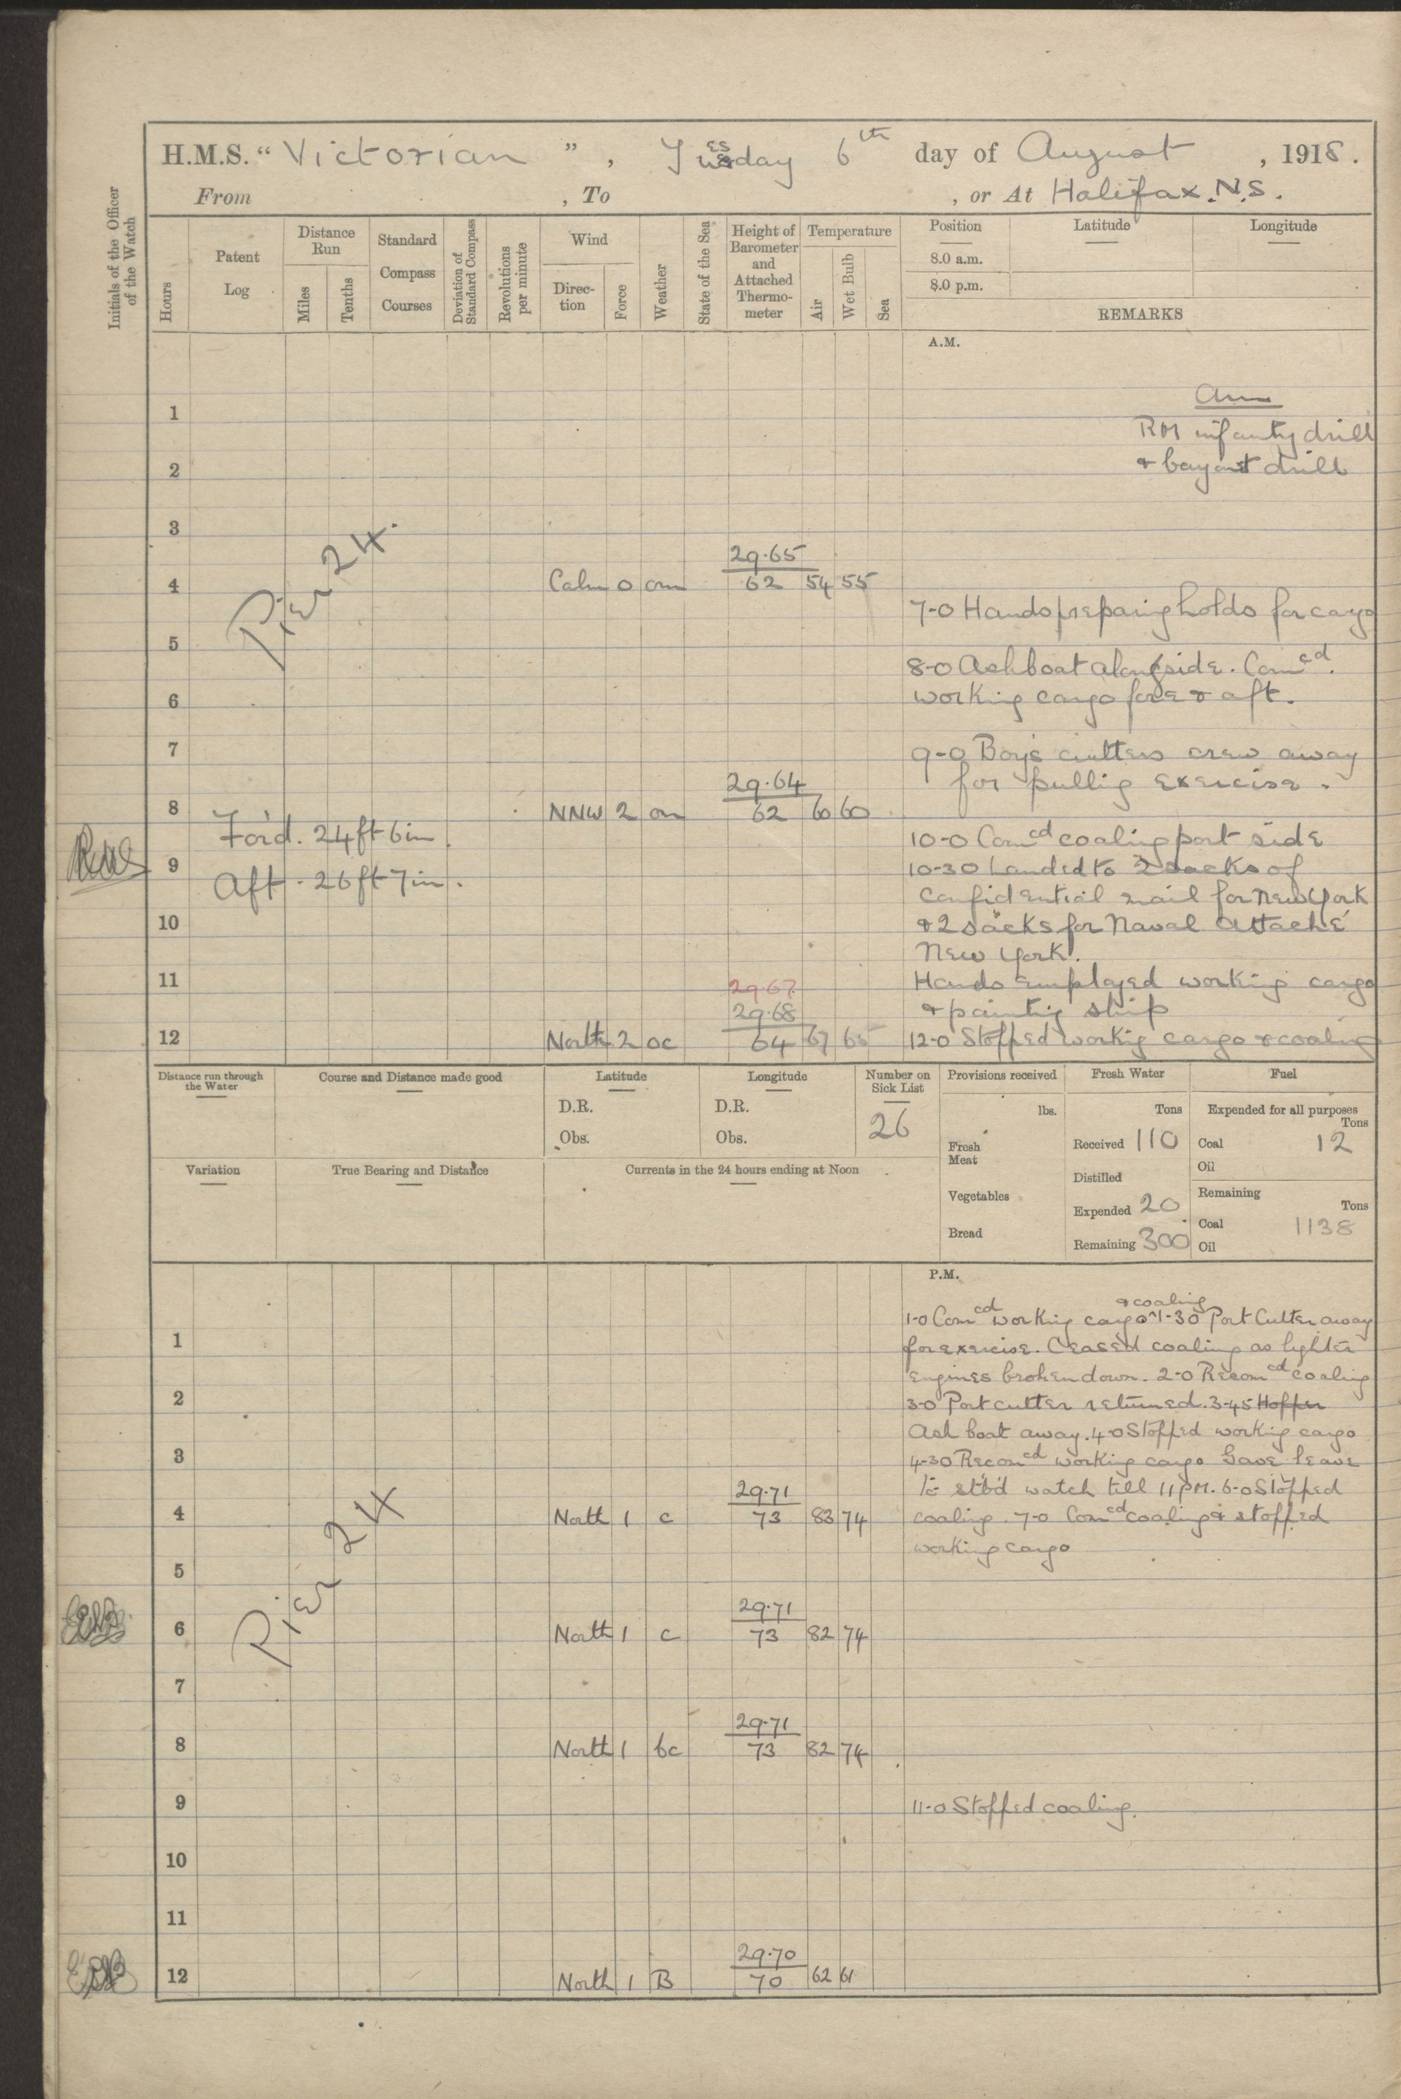 H.M.S. " Victorian " , Tuesday 6th day of August , 1918.
From , To , or At Halifax. N.S.
Initials of the Officer of the Watch
Hours
Patent Log
Distance Run
Miles
Tenths
Standard Compass Courses
Deviation of Standard Compass
Revolutions per minute
Wind
Direc- tion
Force
Weather
State of the Sea
Height of Barometer and Attached Thermo- meter
Temperature
Air
Wet Bulb
Sea
Position
Latitude
Longitude
8.0 a.m.
8.0 p.m.
REMARKS
A.M.
1
RM infantry drill
2 & bayonet drill
3
Pier 24.
29.65
4 Calm 0 om 62 54 55
7-0 Hands preparing holds for cargo
5
8-0 Ashboat alongside. Comcd.
6 working cargo fore & aft.
7 9-0 Boys cutters crew away
29.64 for pulling exercise.
8 NNW 2 om 62 60 60
For'd. 24ft 6in. 10-0 Comcd coaling port side
9 10-30 Landed to 2 sacks of
Aft. 26ft 7in. confidential mail for New York
10 & 2 sacks for Naval Attaché
New York.
11 Hands employed working cargo
29.67
29.68 & painting ship
12 North 2 oc 64 67 65 12-0 Stopped working cargo & coaling
Distance run through the Water
Course and Distance made good
Latitude
D.R.
Obs.
Longitude
D.R.
Obs.
Number on Sick List
26
Provisions received
lbs.
Fresh Meat
Vegetables
Bread
Fresh Water
Tons
Received 110
Distilled
Expended 20
Remaining 300
Fuel
Expended for all purposes
Tons
Coal 12
Oil
Remaining
Tons
Coal 1138
Oil
Variation
True Bearing and Distance
Currents in the 24 hours ending at Noon
P.M.
& coaling
1-0 Comcd working cargo ^ 1-30 Port Cutter away
1 for exercise. Ceased coaling as lighter
engines broken down. 2-0 Recomcd coaling
2 3-0 Port cutter returned. 3-45 Hopper
Ash boat away. 4-0 Stopped working cargo
3 4-30 Recomcd working cargo Gave leave
29.71 to stb'd watch till 11 PM. 6-0 Stopped
4 North 1 c 73 83 74 coaling. 7-0 Comcd coaling & stopped
working cargo
Pier 24
5
29.71
6 North 1 c 73 82 74
7
29.71
8 North 1 bc 73 82 74
9 11-0 Stopped coaling.
10
11
29.70
12 North 1 B 70 62 61